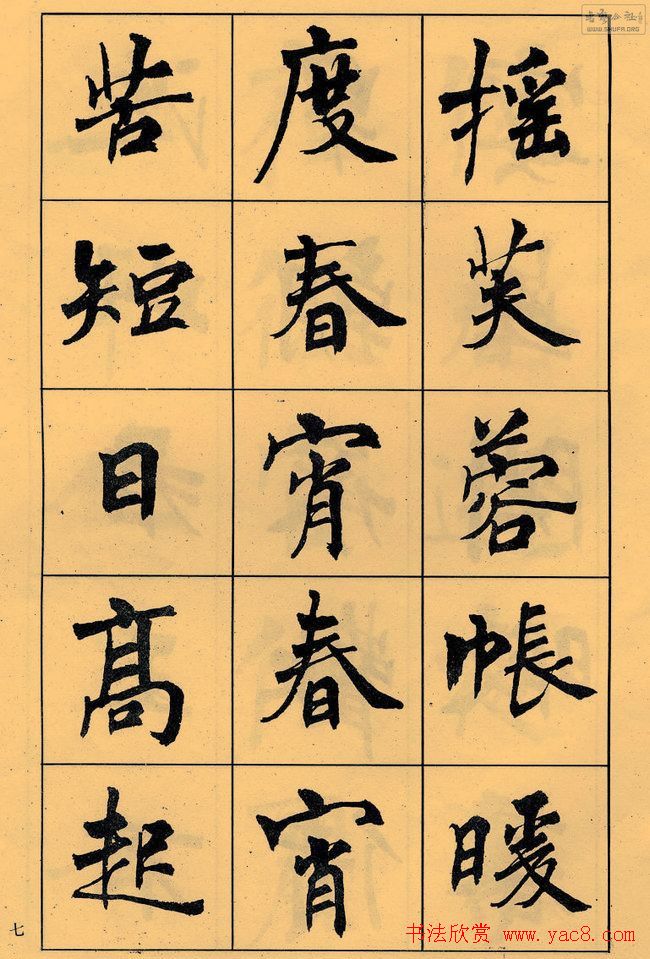 摇芙蓉帳暖
度春宵春宵
苦短日高起
七
书法欣赏 www.yac8.com
WWW.SHUFA.ORG